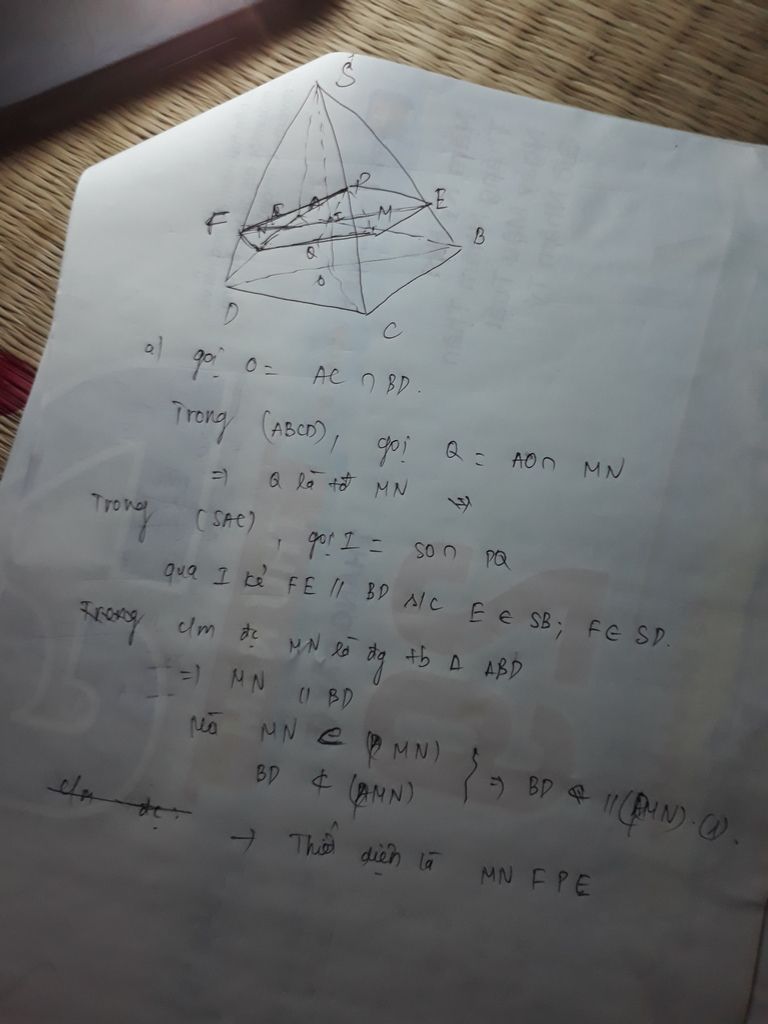 S
P
E
F
M
I
B
N
Q
O
D
C
a) gọi O = AC ∩ BD.
Trong (ABCD), gọi Q = AO ∩ MN
=> Q là tđ MN =>
Trong (SAC), gọi I = SO ∩ PQ
qua I kẻ FE // BD s/c E ∈ SB; F ∈ SD.
Trong c/m đc MN là đg tb Δ ABD
=> MN // BD
Mà MN ⊂ (PMN)
BD ⊄ (PMN) } => BD // (PMN). (1).
c/m đc:
→ Thiết diện là MNFPE